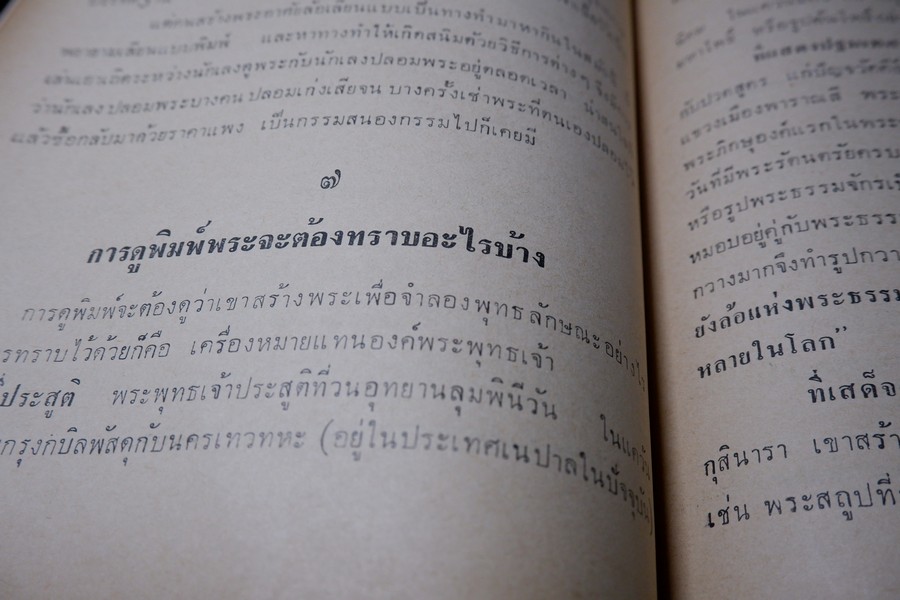 แต่คนสร้างพระอาศัยลอเลียนแบบเป็นทางทำมาหากินในสมัยนี้
พยายามเลียนแบบพิมพ์ และหาทางทำให้เกิดสนิมด้วยวิธีการต่าง ๆ จึงมี
ระหว่างนักเลงดูพระกับนักเลงปลอมพระอยู่ตลอดเวลา
ว่านักเลงปลอมพระบางคน ปลอมเก่งเสียจน บางครั้งเช่าพระที่ตนเองปลอม
แล้วซื้อกลับมาด้วยราคาแพง เป็นกรรมสนองกรรมไปก็เคยมี
๗
การดูพิมพ์พระจะต้องทราบอะไรบ้าง
การดูพิมพ์จะต้องดูว่าเขาสร้างพระเพื่อจำลองพุทธลักษณะอย่างไร
รทราบไว้ด้วยก็คือ เครื่องหมายแทนองค์พระพุทธเจ้า
ที่ประสูติ พระพุทธเจ้าประสูติที่วนอุทยานลุมพินีวัน ในแคว้น
กรุงกบิลพัสดุกับนครเทวทหะ (อยู่ในประเทศเนปาลในปัจจุบัน)
กับปวดสูตร แก่ปัญจวัคคี
แขวงเมืองพาราณสี พระ
พระภิกษุองค์แรกในพระ
วันที่มีพระรัตนตรัยครบ
หรือรูปพระธรรมจักรเ
หมอบอยู่คู่กับพระธรร
กวางมากจึงทำรูปกวา
ยังล้อแห่งพระธรรม
หลายในโลก”
ที่เสด็จ
กุสินารา เขาสร้า
เช่น พระสถูปที่